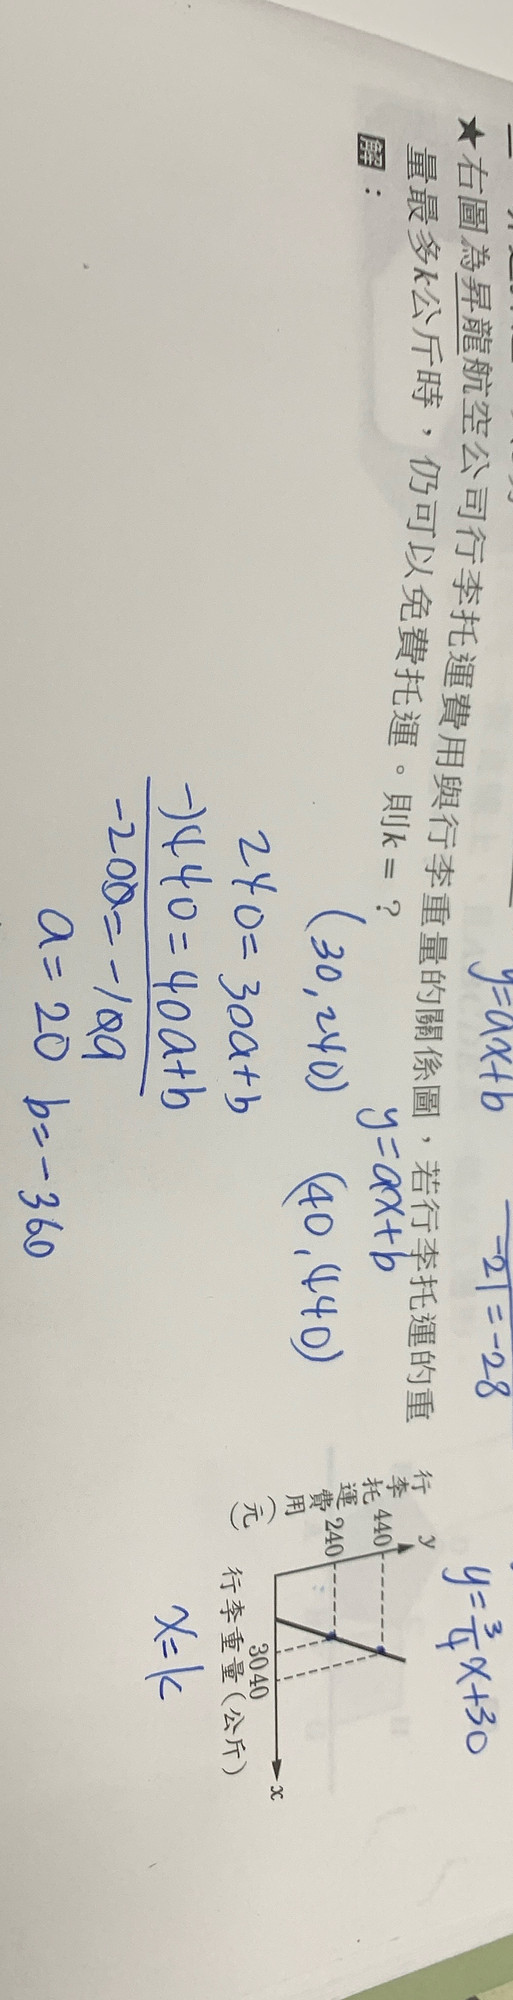 ★右圖為昇龍航空公司行李托運費用與行李重量的關係圖，若行李托運的重
量最多k公斤時，仍可以免費托運。則k=？
解：
y=ax+b
-21=-28
y=3/4x+30
y=ax+b
(30,240) (40,440)
240=30a+b
-)440=40a+b
-200=-10a
a=20 b=-360
行李托運費用(元)
y
440
240
30 40
x
行李重量(公斤)
x=k